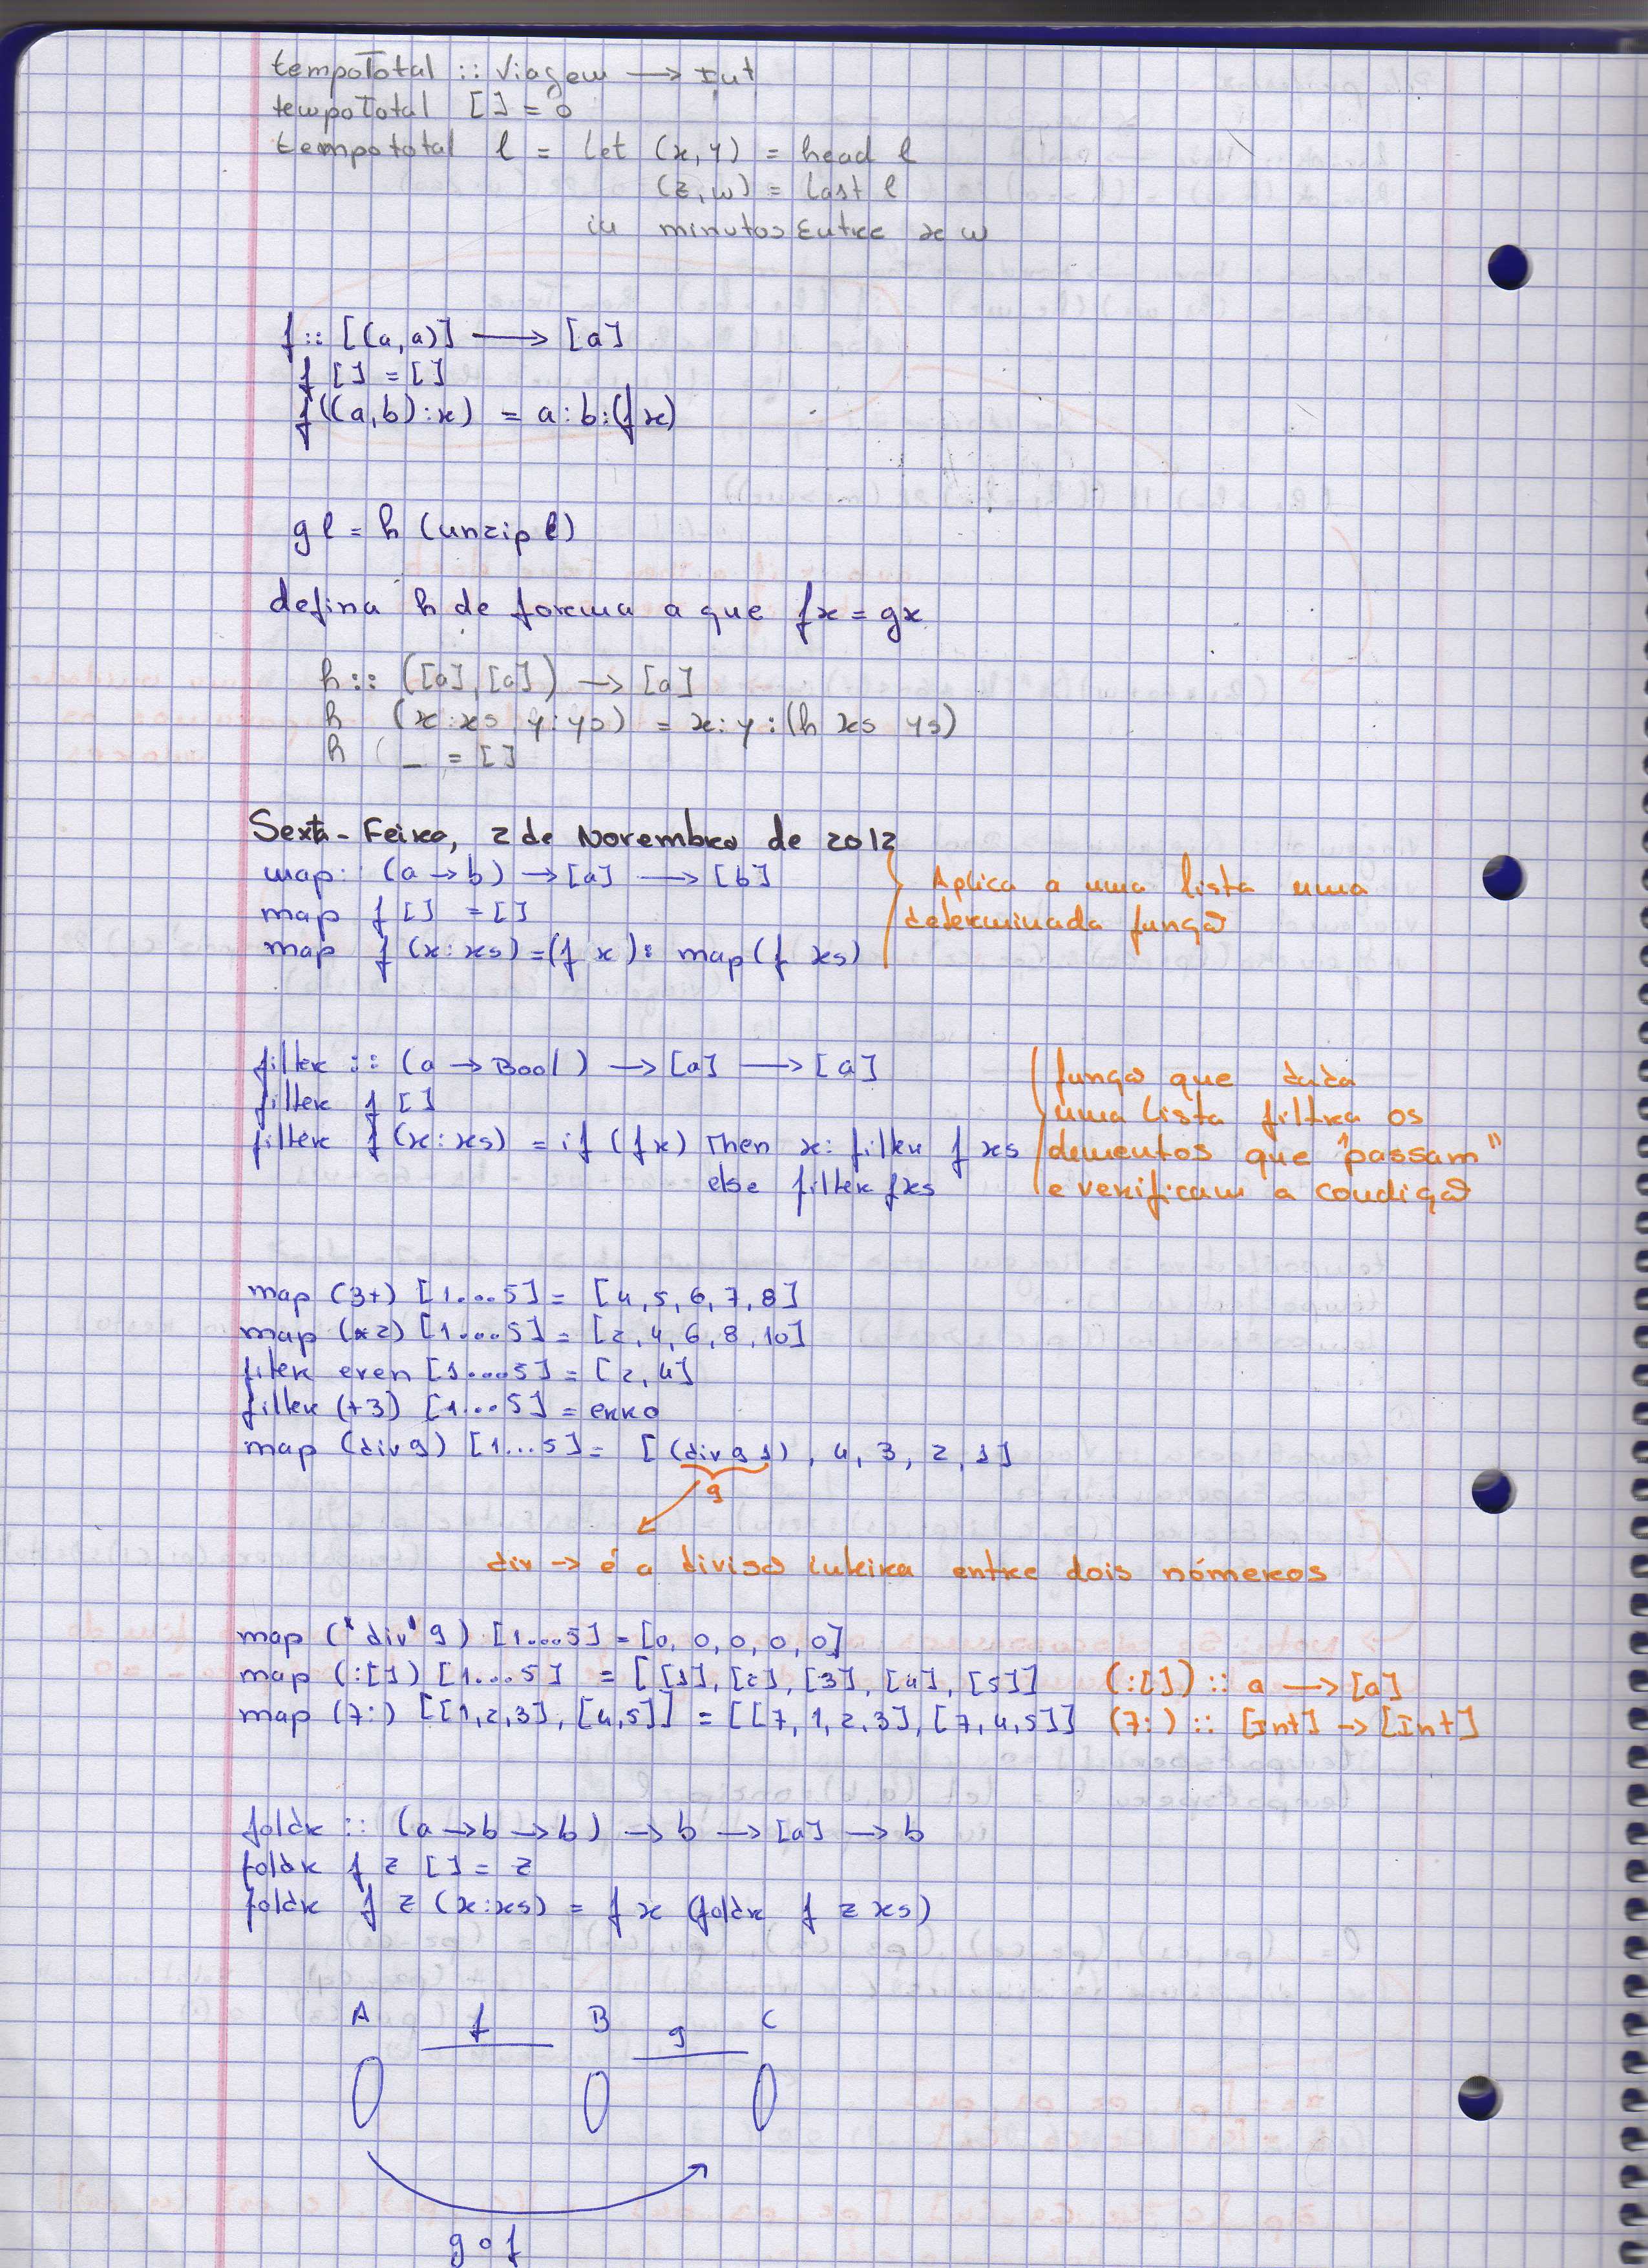 tempoTotal :: Viagem → Int
tempoTotal [] = 0
tempototal l = let (x,y) = head l
(z,w) = last l
in minutosEntre x w
f :: [(a,a)] → [a]
f [] = []
f((a,b):x) = a:b:(f x)
g l = h (unzip l)
defina h de forma a que f x = g x
h :: ([a],[a]) → [a]
h (x:xs, y:ys) = x:y:(h xs ys)
h ( _ = []
Sexta-Feira, 2 de Novembro de 2012
map: (a → b) → [a] → [b]
map f [] = []
map f (x:xs) = (f x): map(f xs)
Aplica a uma lista uma
determinada função
filter :: (a → Bool) → [a] → [a]
filter f []
filter f (x:xs) = if (f x) Then x: filter f xs
else filter f xs
função que dada
uma lista filtra os
elementos que "passam"
e verificam a condição
map (3+) [1...5] = [4,5,6,7,8]
map (*2) [1...5] = [2,4,6,8,10]
filter even [1...5] = [2,4]
filter (+3) [1...5] = erro
map (div 9) [1...5] = [(div 9 1), 4, 3, 2, 1]
9
div → é a divisão inteira entre dois números
map ('div' 9) [1...5] = [0, 0, 0, 0, 0]
map (:[]) [1...5] = [[1], [2], [3], [4], [5]] (:[]) :: a → [a]
map (7:) [[1,2,3], [4,5]] = [[7,1,2,3], [7,4,5]] (7:) :: [Int] → [Int]
foldr :: (a → b → b) → b → [a] → b
foldr f z [] = z
foldr f z (x:xs) = f x (foldr f z xs)
A f B g C
g∘f